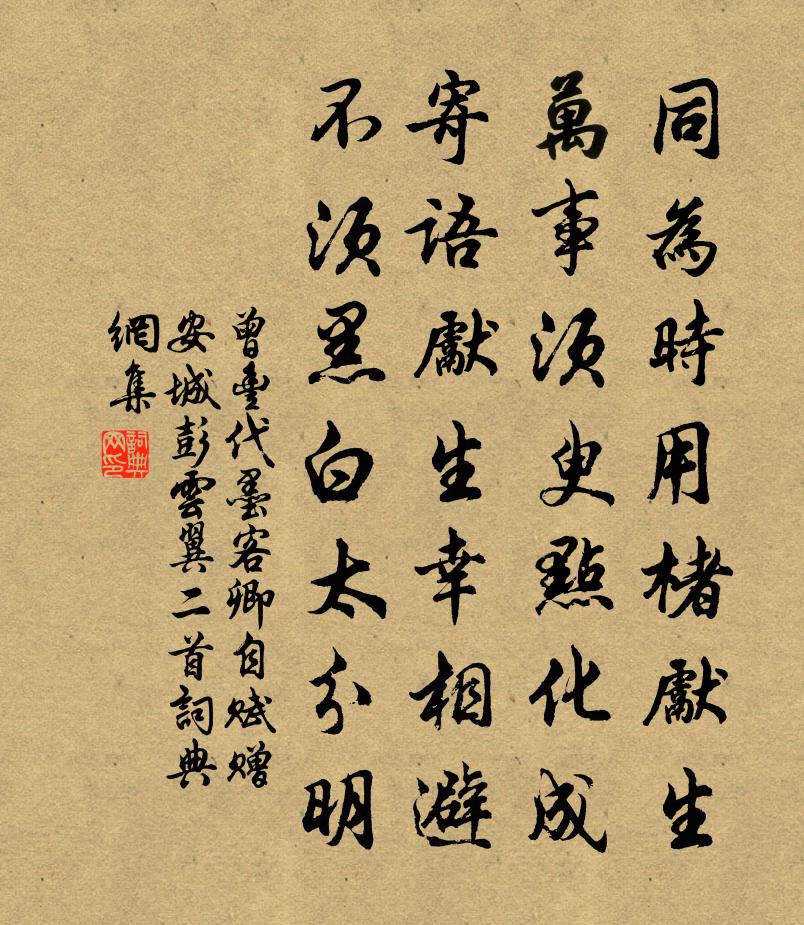 同為時用楮獻生
萬事須臾點化成
寄語獻生幸相避
不須黑白太分明
曾豐代墨客卿自赋赠
安城彭雲翼二首詞典
網集
詞典
网印